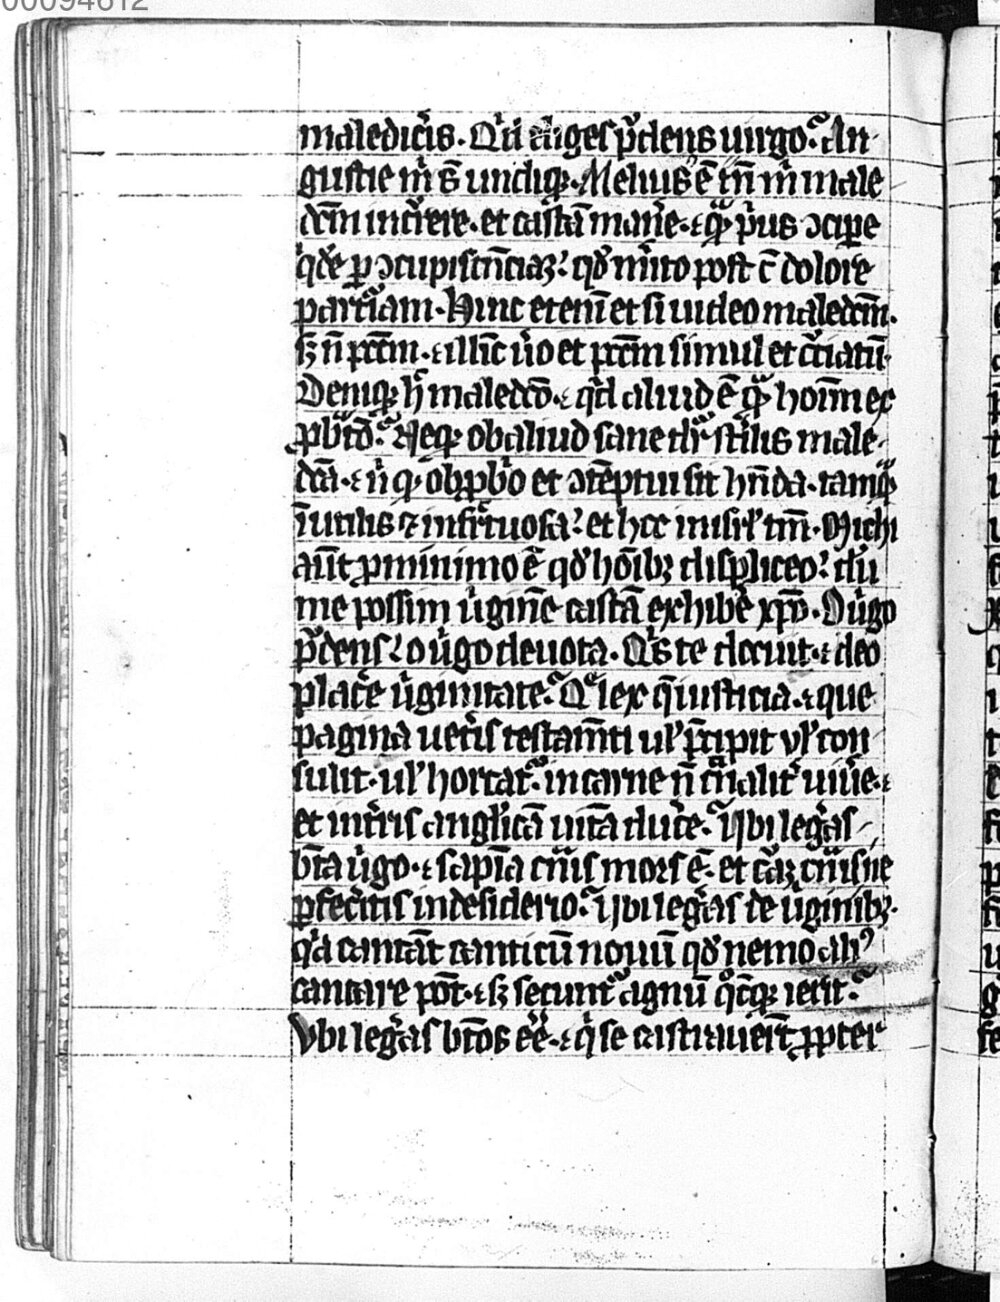 00094612
maledict̓is. Qͥd eliges p̃dens uirgo? An
gustie m̃ s̃t undiq;. Melius ẽ tñ m̃ male
dc̃m incr̃ere. et castã mane̾. qͣ p̾us ɔcipe
qͥde p̱ ɔcupiscñciaȝ? qd̾ m̾ito post c̃ dolore
parturiam. Hinc eteni̅ et si uideo maledc̃m.
sȝ ñ pcc̃m. illic̃ u̾o et pcc̃m simul et cͬciatũ
Deniq; h̾ maledc̃o. qͥd aliud ẽ qͣ hoĩm ex
ꝓbͬtõ? Neq; ob aliud sane dr̃ st̾ilis male
dc̃a. ñ q̱ obꝓbͬo et ɔtẽptui sit hñda. tamqͣ
ĩutilis ⁊ infrͨtuosa? et hec in isrl̾ tm̃. Michi
aũt ꝓ minimo ẽ qd̾ hõibȝ displiceo? dũ
me possim u̾ginẽ castã exhibe̾ xp̃o. O u̾go
p̾dens? o u̾go deuota. Qͥs te docuit deo
place̾ u̾ginitate? Q̃ lex q̃ iusticia. que
pagina uet̾is testam̃ti ul̾ p̃cipit ul̾ con
sulit. ul̾ hortat̾? in carne ñ cͬnalit̾ uiue̾.
et int̾ris anglicã uitã duce̾? Ubi leg̾as
bt̃a u̾go. sapĩa cͬnis mors ẽ. et cͬaȝ cͬnis ne
ꝑfec̾itis in desiderio? Ubi leg̾as de u̾ginibȝ.
qͥa cantãt canticũ nouũ qd̾ nemo aliꝰ
cantare põt. sȝ secunt̾ agnũ qͦcq; ierit?
Vbi leg̾as bt̃os ẽe. qͥ se castrauer̃t ꝓpter